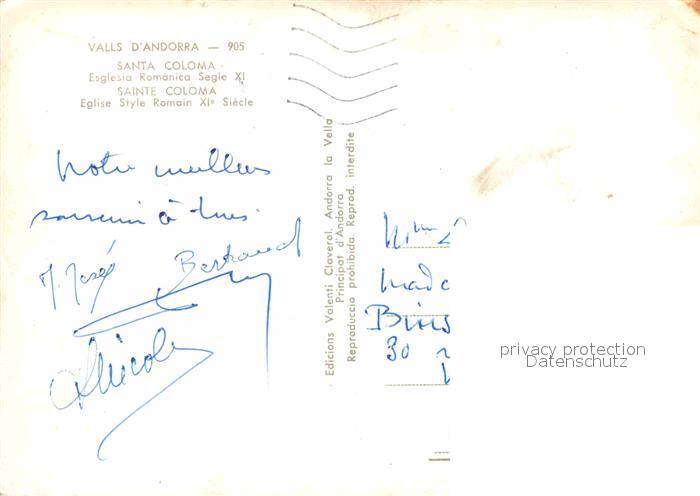 VALLS D'ANDORRA — 905
SANTA COLOMA
Esglesia Romànica Segle XI
SAINTE COLOMA
Eglise Style Romain XIe Siècle
Notre meilleur
souvenir à tous.
Bertrand
Nicole
Edicions Valentí Claverol. Andorra la Vella
Principat d'Andorra
Reproduccio prohibida. Reprod. interdite
Mada
30
privacy protection
Datenschutz